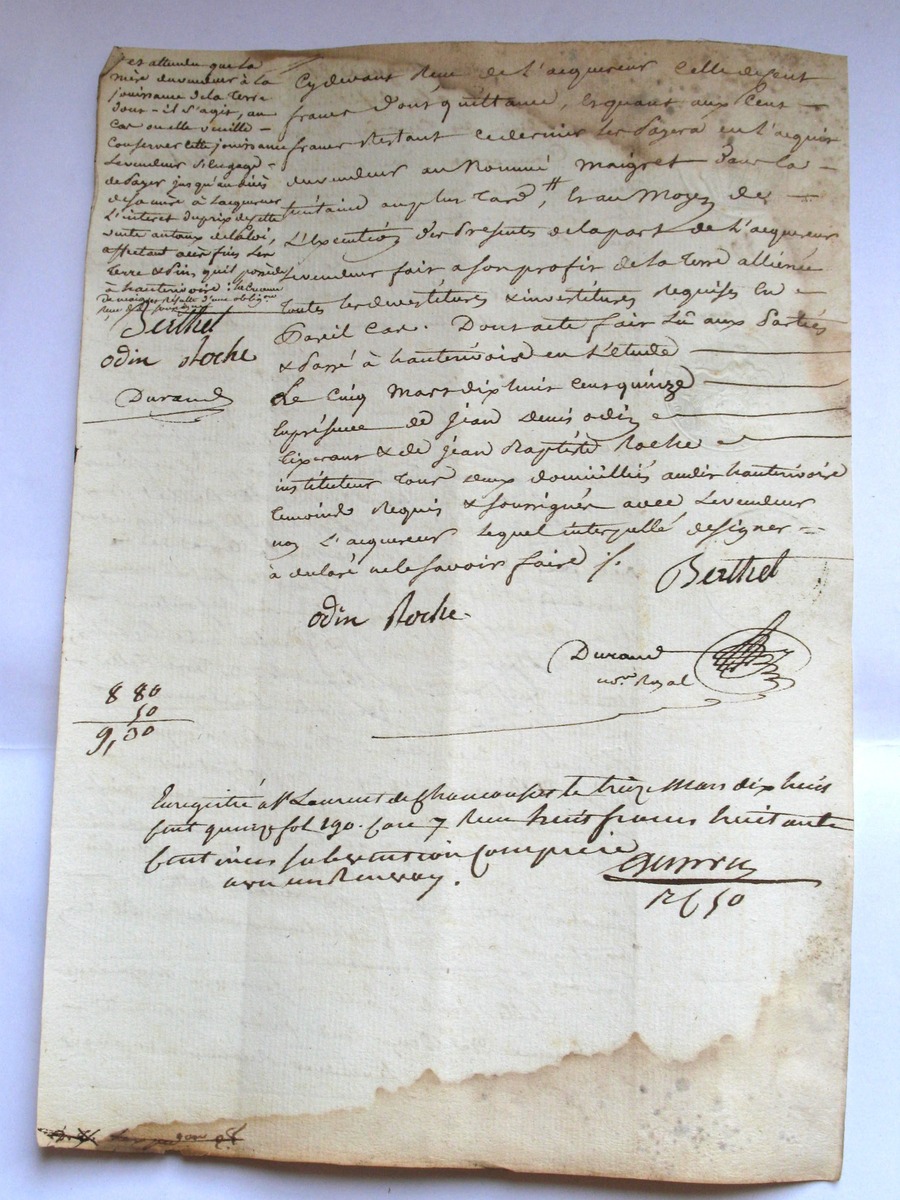 et attendu que la
mère du vendeur à la
jouissance de la terre
dont il s'agit, au
cas ou elle veuille
Conserver cette jouissance
Le vendeur s'engage
de payer jusqu'au décès
de sa mère à l'acquereur
L'interet du prix de cette
vente au taux de la loi,
affectant aux fins les
terre & Pins qu'il possède
à hauterivoire :
De maigret résulte d'une obligon
Berthet
odin Roche
Durand
Cydevant Reçu de l'acquereur Celle de cent
francs dont quittance, Et quant aux Cent
francs Restant ce dernier les Payera en l'acquit
du vendeur au Nommé Maigret dans la
huitaine au plus Tard #, Et au Moyen de
L'Execution des Presentes de la part de l'acquereur
Le vendeur fait a son profit de la Terre alliénée
toutes les devestitures & investitures Requises En
Pareil Cas. Dont acte fait Lû aux Parties
& Passé à hauterivoire en L'étude
Le Cinq Mars dix huit Cent quinze
En présence de jean denis odin
tixerant & de jean Baptiste Roche
instituteur tous deux domiciliés audit hauterivoire
temoins Requis & soussignés avec Le vendeur
non L'acquereur Lequel interpellé de signer =
à declaré ne le savoir faire ./.
Berthet
odin Roche
Durand
nore Royal
8 80
50
9,30
Enregistré a St Laurent de Chamousset le treize Mars dix huit
cent quinze fol 190. case 7 Reçu huit francs huitante
centimes subvention Comprise
avec un Renvoy.